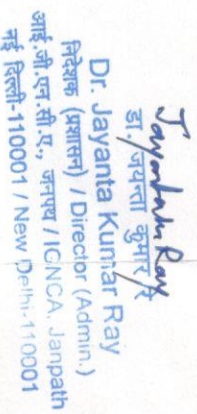 Jayanta Ray
डा. जयन्ता कुमार रे
Dr. Jayanta Kumar Ray
निदेशक (प्रशासन) / Director (Admin.)
आई.जी.एन.सी.ए., जनपथ / IGNCA, Janpath
नई दिल्ली-110001 / New Delhi-110001